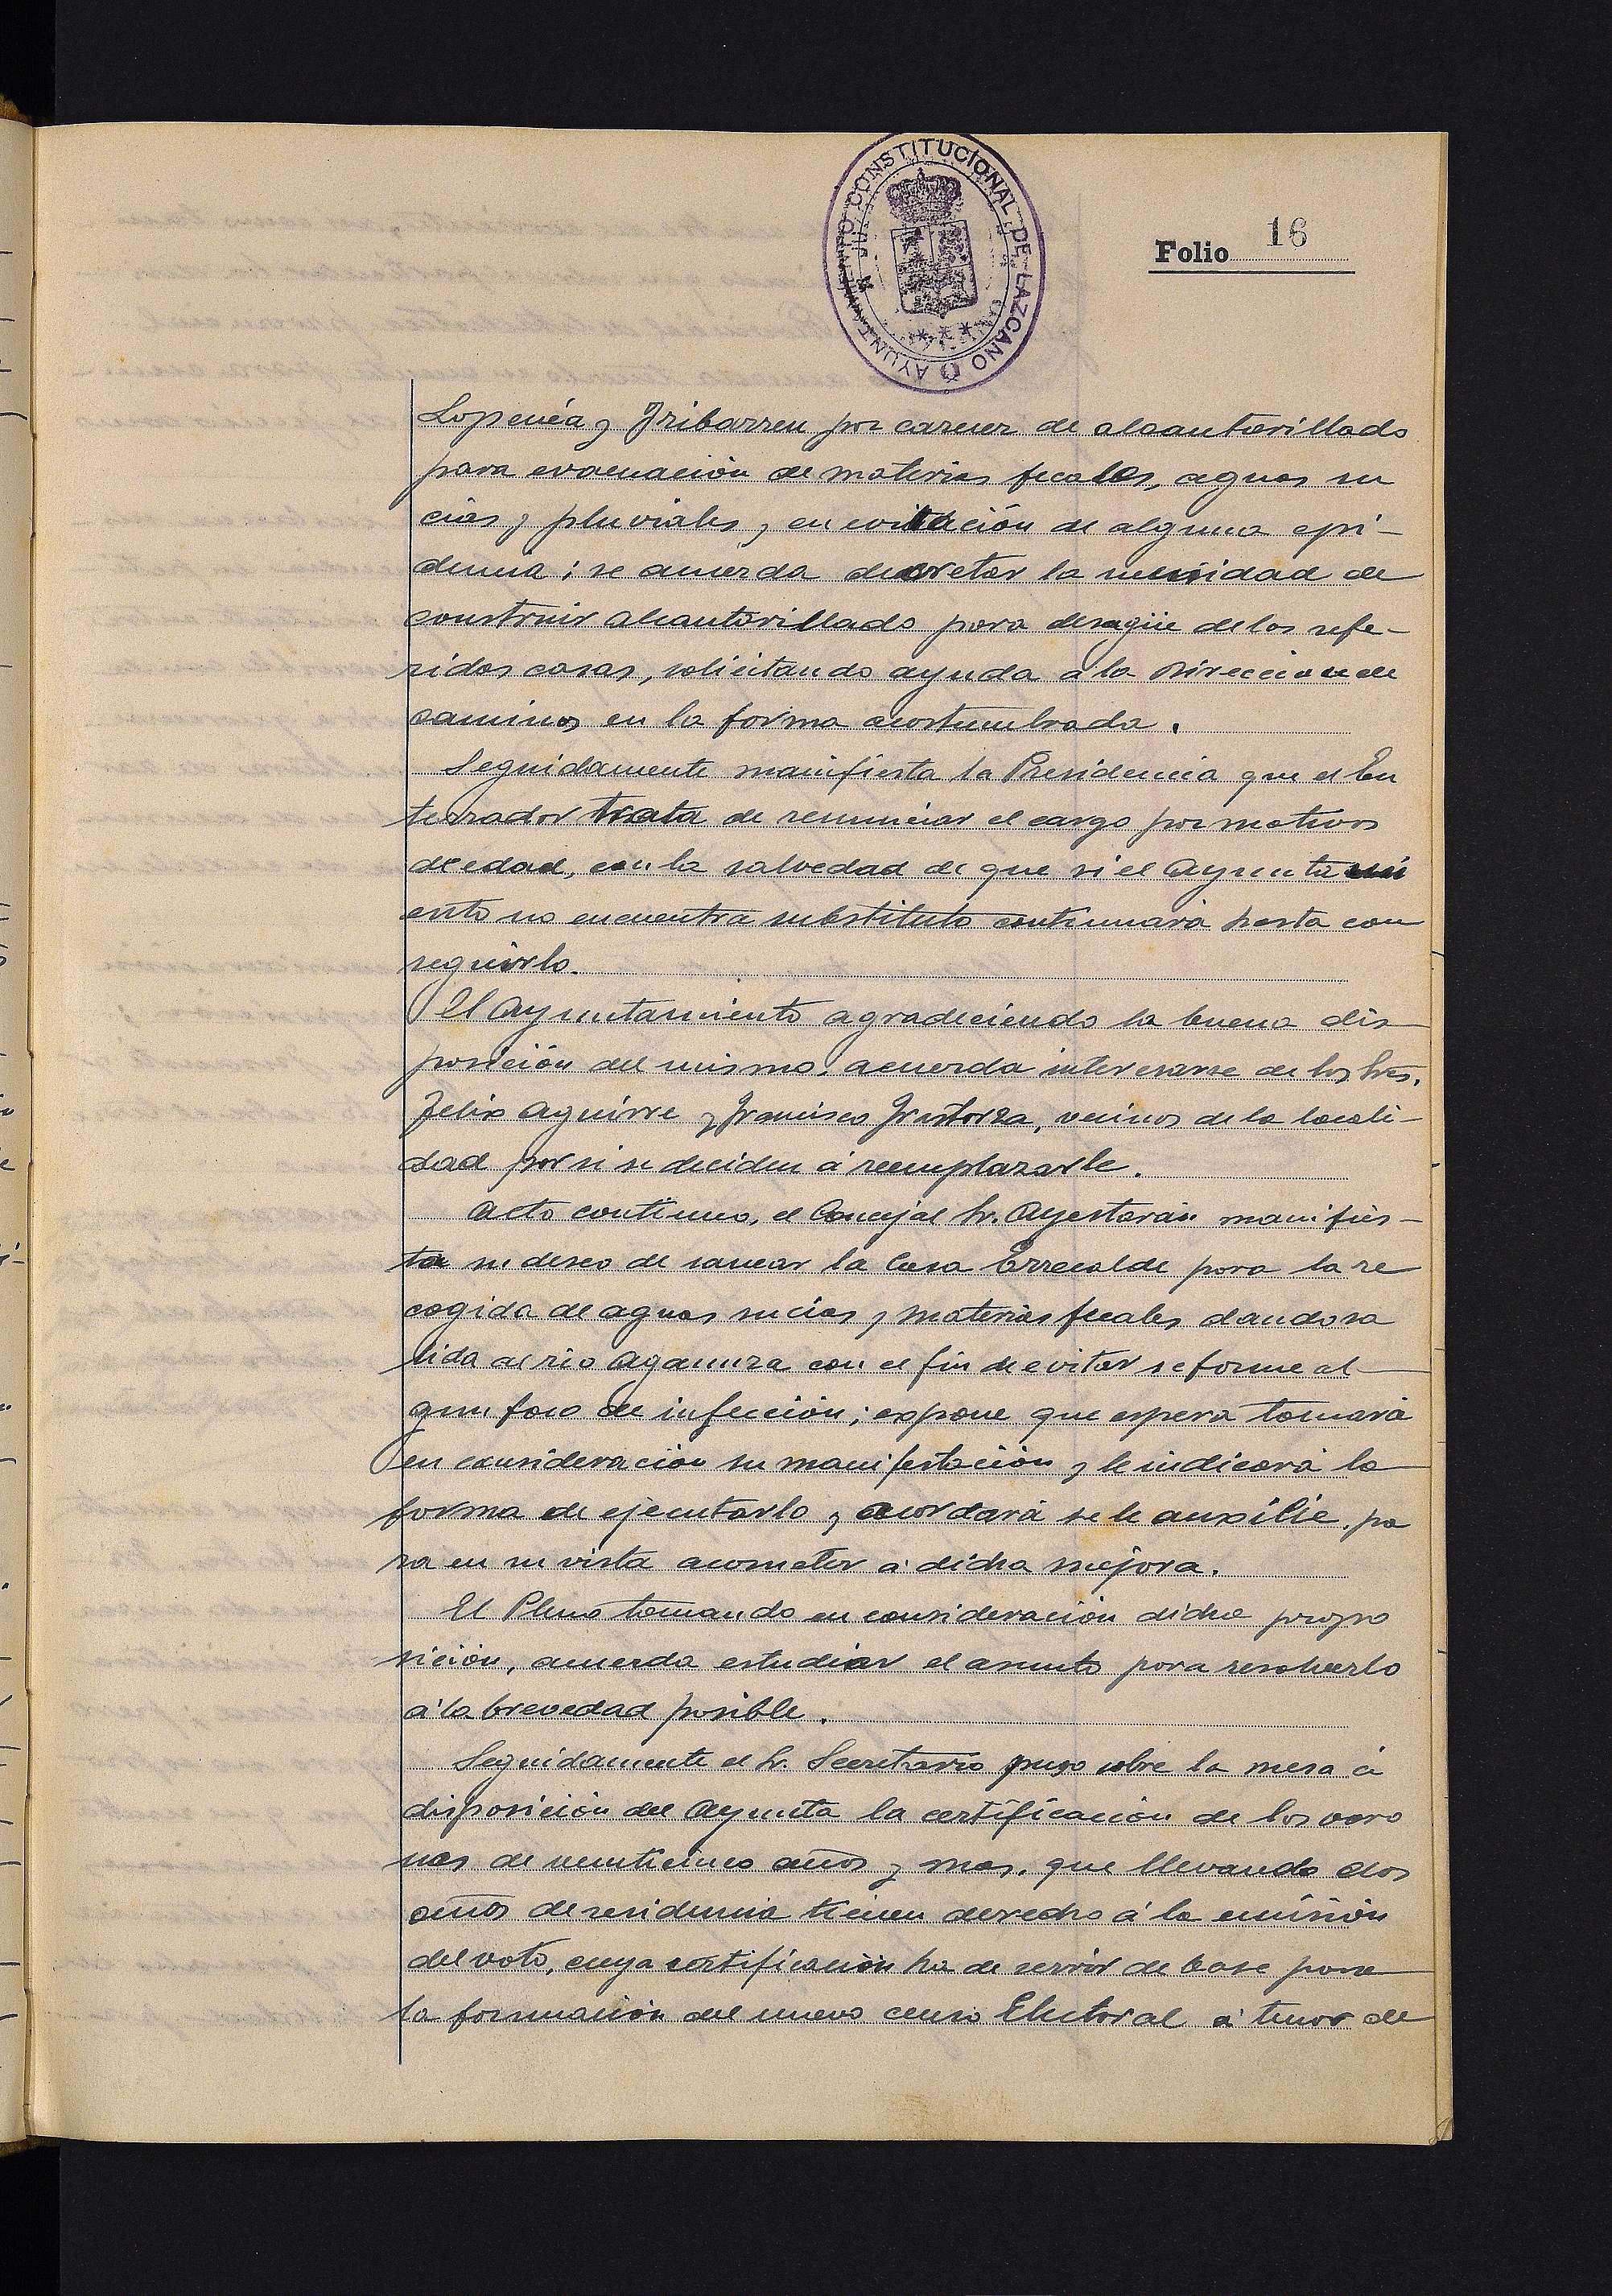 AYUNTAMIENTO CONSTITUCIONAL DE LAZCANO
Folio 16
y Iribarren por carecer de alcantarillado
para evacuación de materias fecales, aguas su
cias y pluviales, y en evitación de alguna epi-
demia; se acuerda decretar la necesidad de
construir alcantarillado para desagüe de los refe-
ridos casas, solicitando ayuda á la Dirección de
caminos en la forma acostumbrada.
Seguidamente manifiesta la Presidencia que el En
terrador trata de renunciar el cargo por motivos
de edad, con la salvedad de que si el Ayuntami
ento no encuentra substituto continuará hasta con
seguirlo.
El Ayuntamiento agradeciendo la buena dis-
posición del mismo, acuerda interesarse de los Sres.
Felix Aguirre y Francisco Irastorza, vecinos de la locali-
dad por si se deciden á reemplazarle.
Acto continuo, el Concejal Sr. Ayestarán manifies-
ta su deseo de sanear la Casa Errecalde para la re
cogida de aguas sucias y materias fecales dando sa
lida al río Agaunza con el fin de evitar se forme al-
gun foco de infección; expone que espera tomará
en consideración su manifestación y le indicará la
forma de ejecutarlo y acordará se le auxilie, pa
ra en su vista acometer á dicha mejora.
El Pleno tomando en consideración dicha propo
sición, acuerda estudiar el asunto para resolverlo
á la brevedad posible.
Seguidamente el Sr. Secretario puso sobre la mesa á
disposición del Ayunta la certificación de los varo
nes de veinticinco años y mas, que llevando dos
años de residencia tienen derecho á la emisión
del voto, cuya certificación ha de servir de base para
la formación del nuevo censo Electoral á tenor de